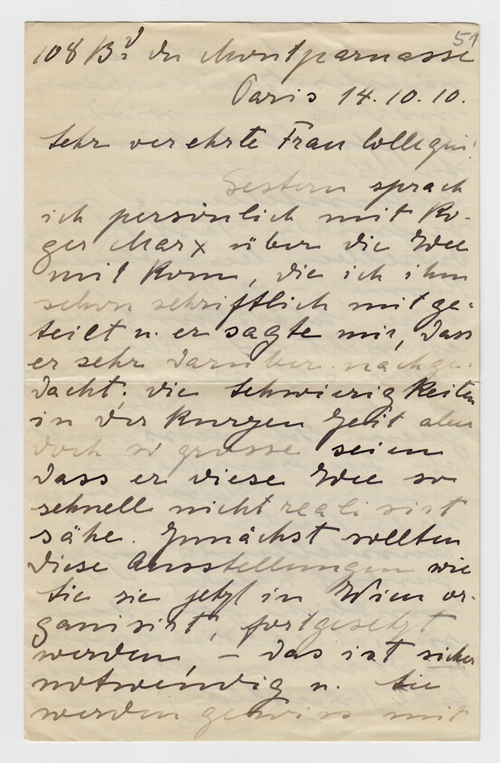 51
108 Bd du Montparnasse
Paris 14.10.10.
Sehr verehrte Frau Collegin!
Gestern sprach
ich persönlich mit Ro-
ger Marx über die Idee
mit Rom, die ich ihm
schon schriftlich mitge-
teilt u. er sagte mir, dass
er sehr darüber nachge-
dacht; die Schwierigkeiten
in der kurzen Zeit aber
doch so grosse seien
dass er diese Idee so
schnell nicht realisirt
sähe. Zunächst sollten
diese Ausstellungen wie
Sie sie jetzt in Wien or-
ganisirt, fortgesetzt
werden, – das ist sicher
notwendig u. Sie
werden gewiss mit